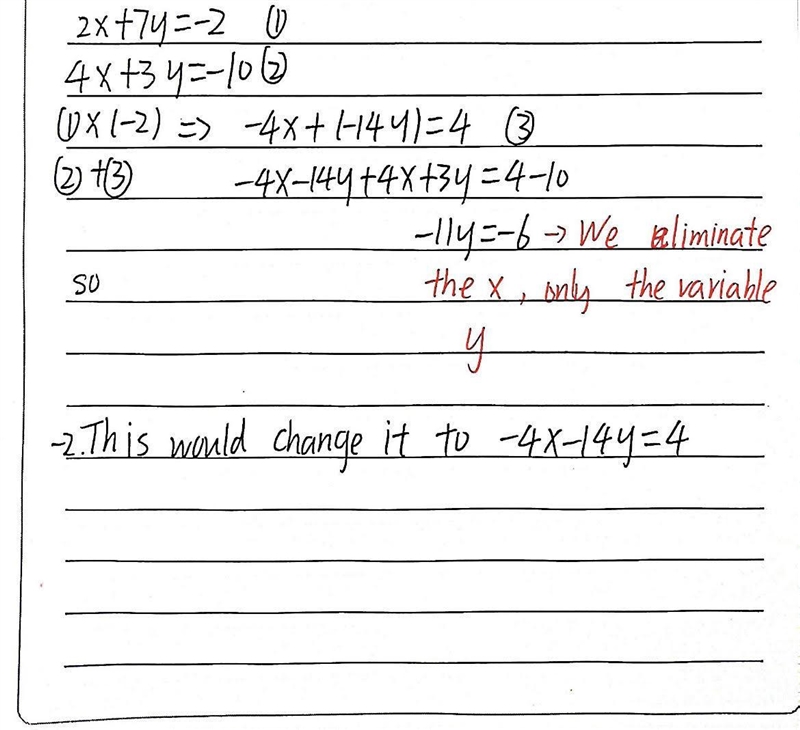 2x+7y=-2 ①
4x+3y=-10 ②
①×(-2) => -4x+(-14y)=4 ③
②+③ -4x-14y+4x+3y=4-10
-11y=-6 → We eliminate
so the x, only the variable
y
-2. This would change it to -4x-14y=4